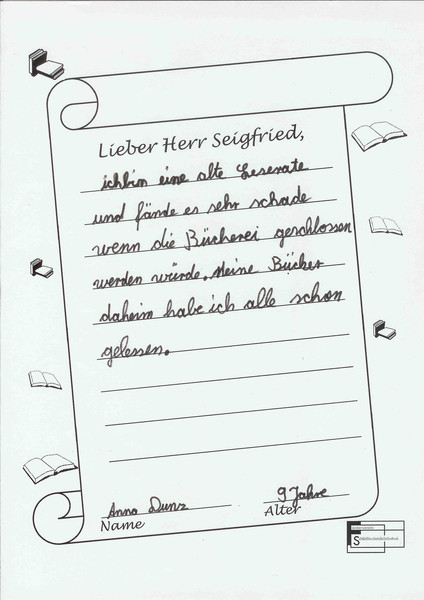 Lieber Herr Seigfried,
ich bin eine alte Leserate
und fände es sehr schade
wenn die Bücherei geschlossen
werden würde. Meine Bücher
daheim habe ich alle schon
gelessen.
Anna Dunz 9 Jahre
Name Alter